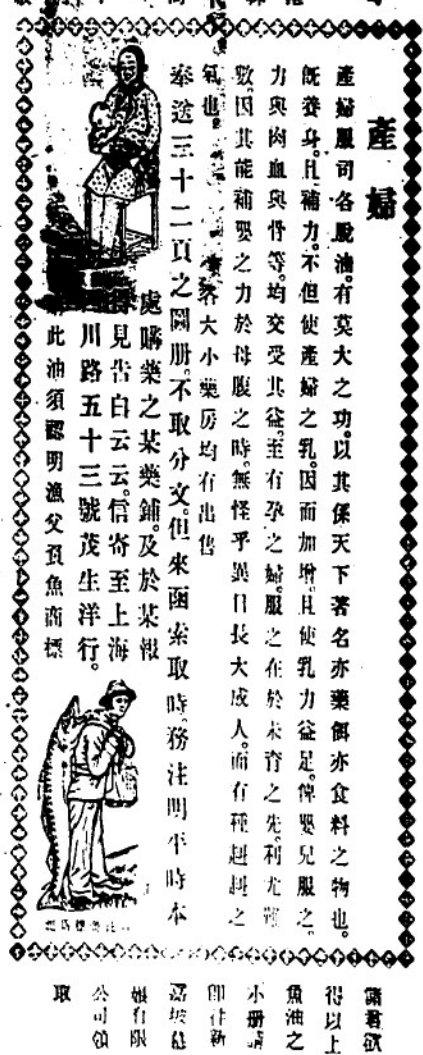 產婦
產婦服司各脫油。有莫大之功。以其係天下著名亦藥餌亦食料之物也。
既養身。且補力。不但使產婦之乳。因而加增。且使乳力益足。俾嬰兒服之。
力與肉血與骨等。均交受其益。至有孕之婦。服之在於未育之先。利尤難
數。因其能補嬰之力於母腹之時。無怪乎異日長大成人。而有種赳赳之
氣也。
各大小藥房均有出售
奉送三十二頁之圖册。不取分文。但來函索取時。務注明平時本
處購藥之某藥鋪。及於某報
得見告白云云。信寄至上海
川路五十三號茂生洋行。
此油須認明漁父負魚商標
諸君欲
得以上
魚油之
小册請
即往新
嘉坡
娘有限
公司領
取